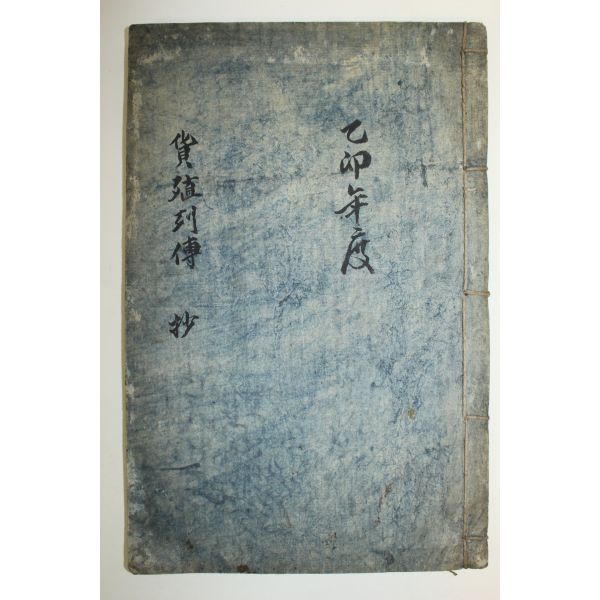 乙卯年度
貨殖列傳 抄
一